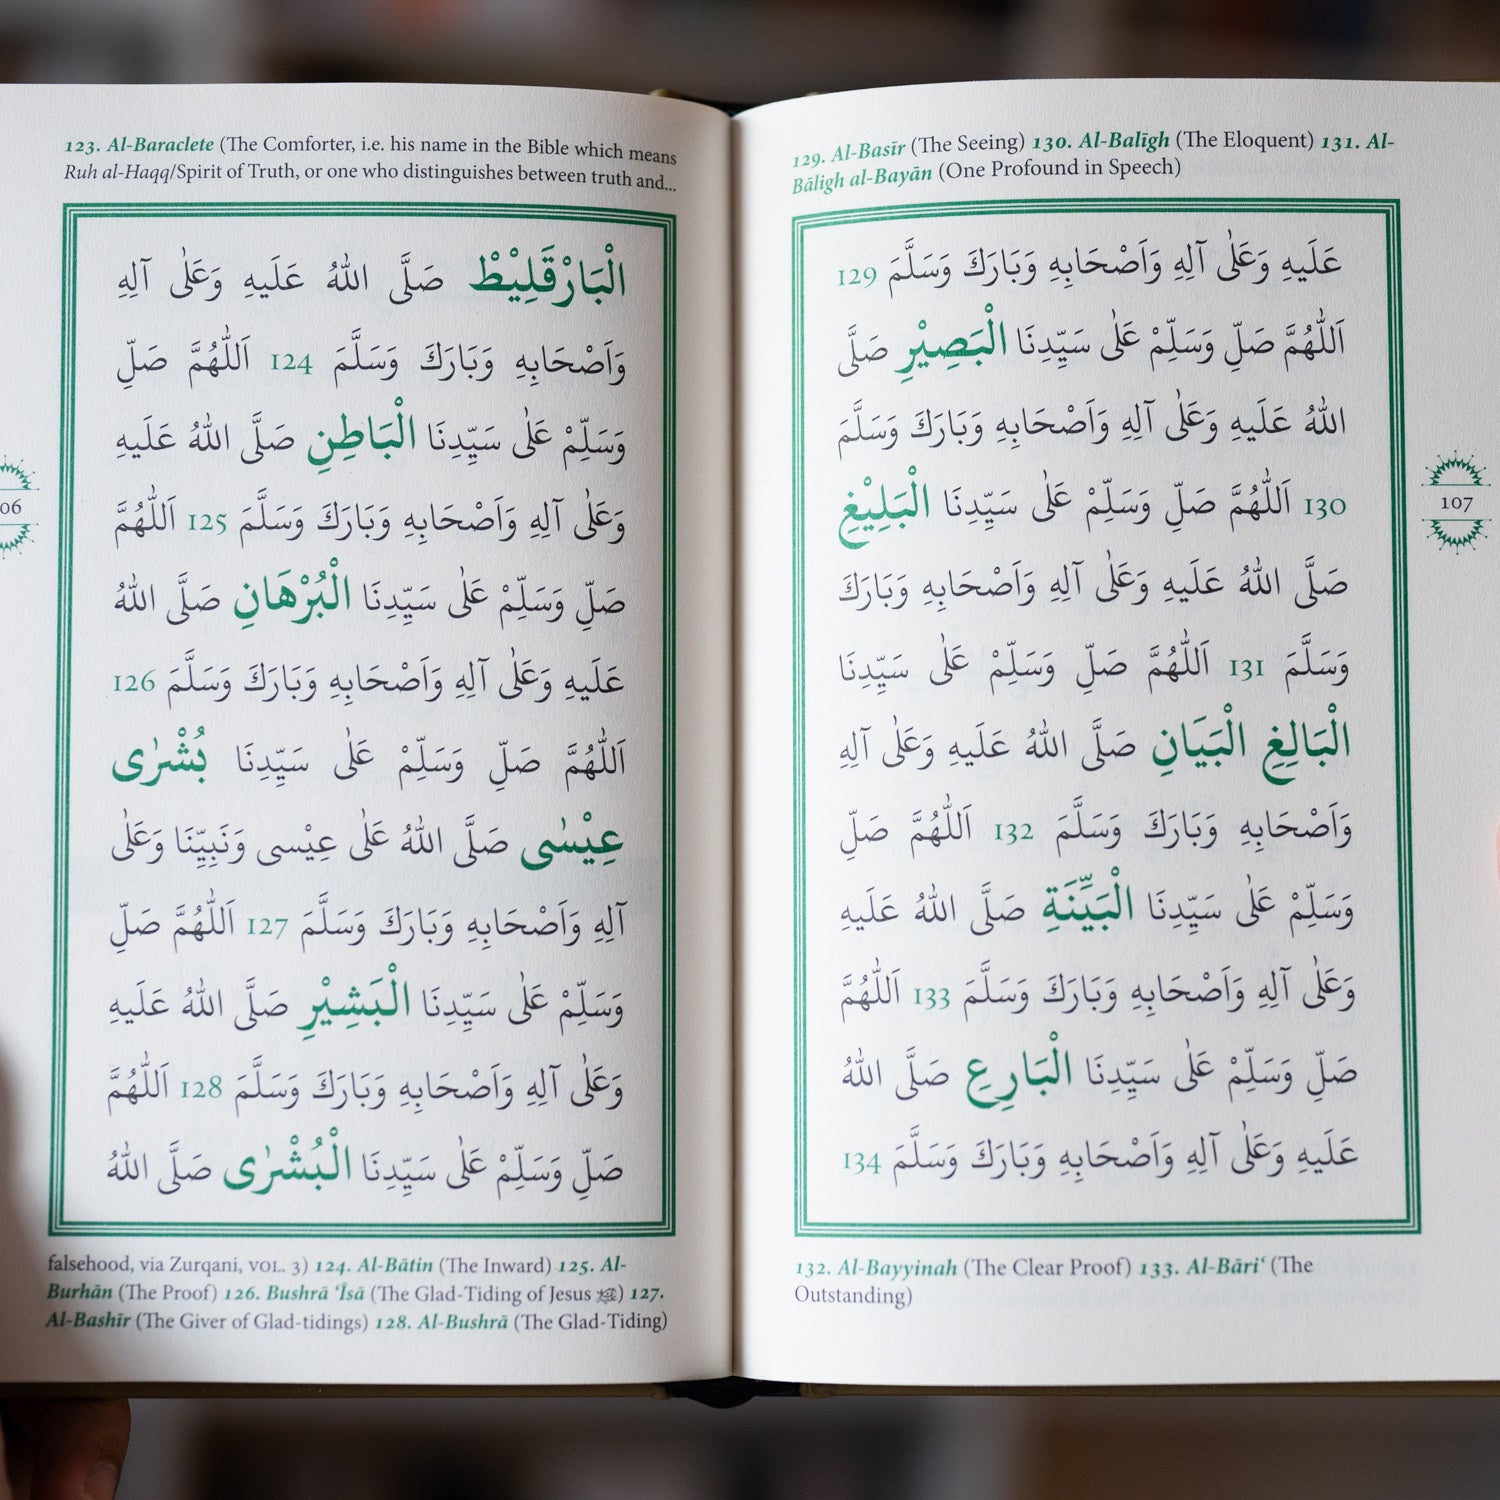 123. Al-Baraclete (The Comforter, i.e. his name in the Bible which means
Ruh al-Haqq/Spirit of Truth, or one who distinguishes between truth and...
الْبَارْقَلِيْطْ صَلَّى اللهُ عَلَيهِ وَعَلٰى آلِهِ
وَاَصْحَابِهِ وَبَارَكَ وَسَلَّمَ 124 اَللّٰهُمَّ صَلِّ
وَسَلِّمْ عَلٰى سَيِّدِنَا الْبَاطِنِ صَلَّى اللهُ عَلَيهِ
وَعَلٰى آلِهِ وَاَصْحَابِهِ وَبَارَكَ وَسَلَّمَ 125 اَللّٰهُمَّ
صَلِّ وَسَلِّمْ عَلٰى سَيِّدِنَا الْبُرْهَانِ صَلَّى اللهُ
عَلَيهِ وَعَلٰى آلِهِ وَاَصْحَابِهِ وَبَارَكَ وَسَلَّمَ 126
اَللّٰهُمَّ صَلِّ وَسَلِّمْ عَلٰى سَيِّدِنَا بُشْرٰى
عِيْسٰى صَلَّى اللهُ عَلٰى عِيْسى وَنَبِيِّنَا وَعَلٰى
آلِهِ وَاَصْحَابِهِ وَبَارَكَ وَسَلَّمَ 127 اَللّٰهُمَّ صَلِّ
وَسَلِّمْ عَلٰى سَيِّدِنَا الْبَشِيْرِ صَلَّى اللهُ عَلَيهِ
وَعَلٰى آلِهِ وَاَصْحَابِهِ وَبَارَكَ وَسَلَّمَ 128 اَللّٰهُمَّ
صَلِّ وَسَلِّمْ عَلٰى سَيِّدِنَا الْبُشْرٰى صَلَّى اللهُ
falsehood, via Zurqani, VOL. 3) 124. Al-Bātin (The Inward) 125. Al-
Burhān (The Proof) 126. Bushrā ‘Īsā (The Glad-Tiding of Jesus ) 127.
Al-Bashīr (The Giver of Glad-tidings) 128. Al-Bushrā (The Glad-Tiding)
06
129. Al-Basīr (The Seeing) 130. Al-Balīgh (The Eloquent) 131. Al-
Bāligh al-Bayān (One Profound in Speech)
عَلَيهِ وَعَلٰى آلِهِ وَاَصْحَابِهِ وَبَارَكَ وَسَلَّمَ 129
اَللّٰهُمَّ صَلِّ وَسَلِّمْ عَلٰى سَيِّدِنَا الْبَصِيْرِ صَلَّى
اللهُ عَلَيهِ وَعَلٰى آلِهِ وَاَصْحَابِهِ وَبَارَكَ وَسَلَّمَ
130 اَللّٰهُمَّ صَلِّ وَسَلِّمْ عَلٰى سَيِّدِنَا الْبَلِيْغِ
صَلَّى اللهُ عَلَيهِ وَعَلٰى آلِهِ وَاَصْحَابِهِ وَبَارَكَ
وَسَلَّمَ 131 اَللّٰهُمَّ صَلِّ وَسَلِّمْ عَلٰى سَيِّدِنَا
الْبَالِغِ الْبَيَانِ صَلَّى اللهُ عَلَيهِ وَعَلٰى آلِهِ
وَاَصْحَابِهِ وَبَارَكَ وَسَلَّمَ 132 اَللّٰهُمَّ صَلِّ
وَسَلِّمْ عَلٰى سَيِّدِنَا الْبَيِّنَةِ صَلَّى اللهُ عَلَيهِ
وَعَلٰى آلِهِ وَاَصْحَابِهِ وَبَارَكَ وَسَلَّمَ 133 اَللّٰهُمَّ
صَلِّ وَسَلِّمْ عَلٰى سَيِّدِنَا الْبَارِعِ صَلَّى اللهُ
عَلَيهِ وَعَلٰى آلِهِ وَاَصْحَابِهِ وَبَارَكَ وَسَلَّمَ 134
132. Al-Bayyinah (The Clear Proof) 133. Al-Bāri‘ (The
Outstanding)
107